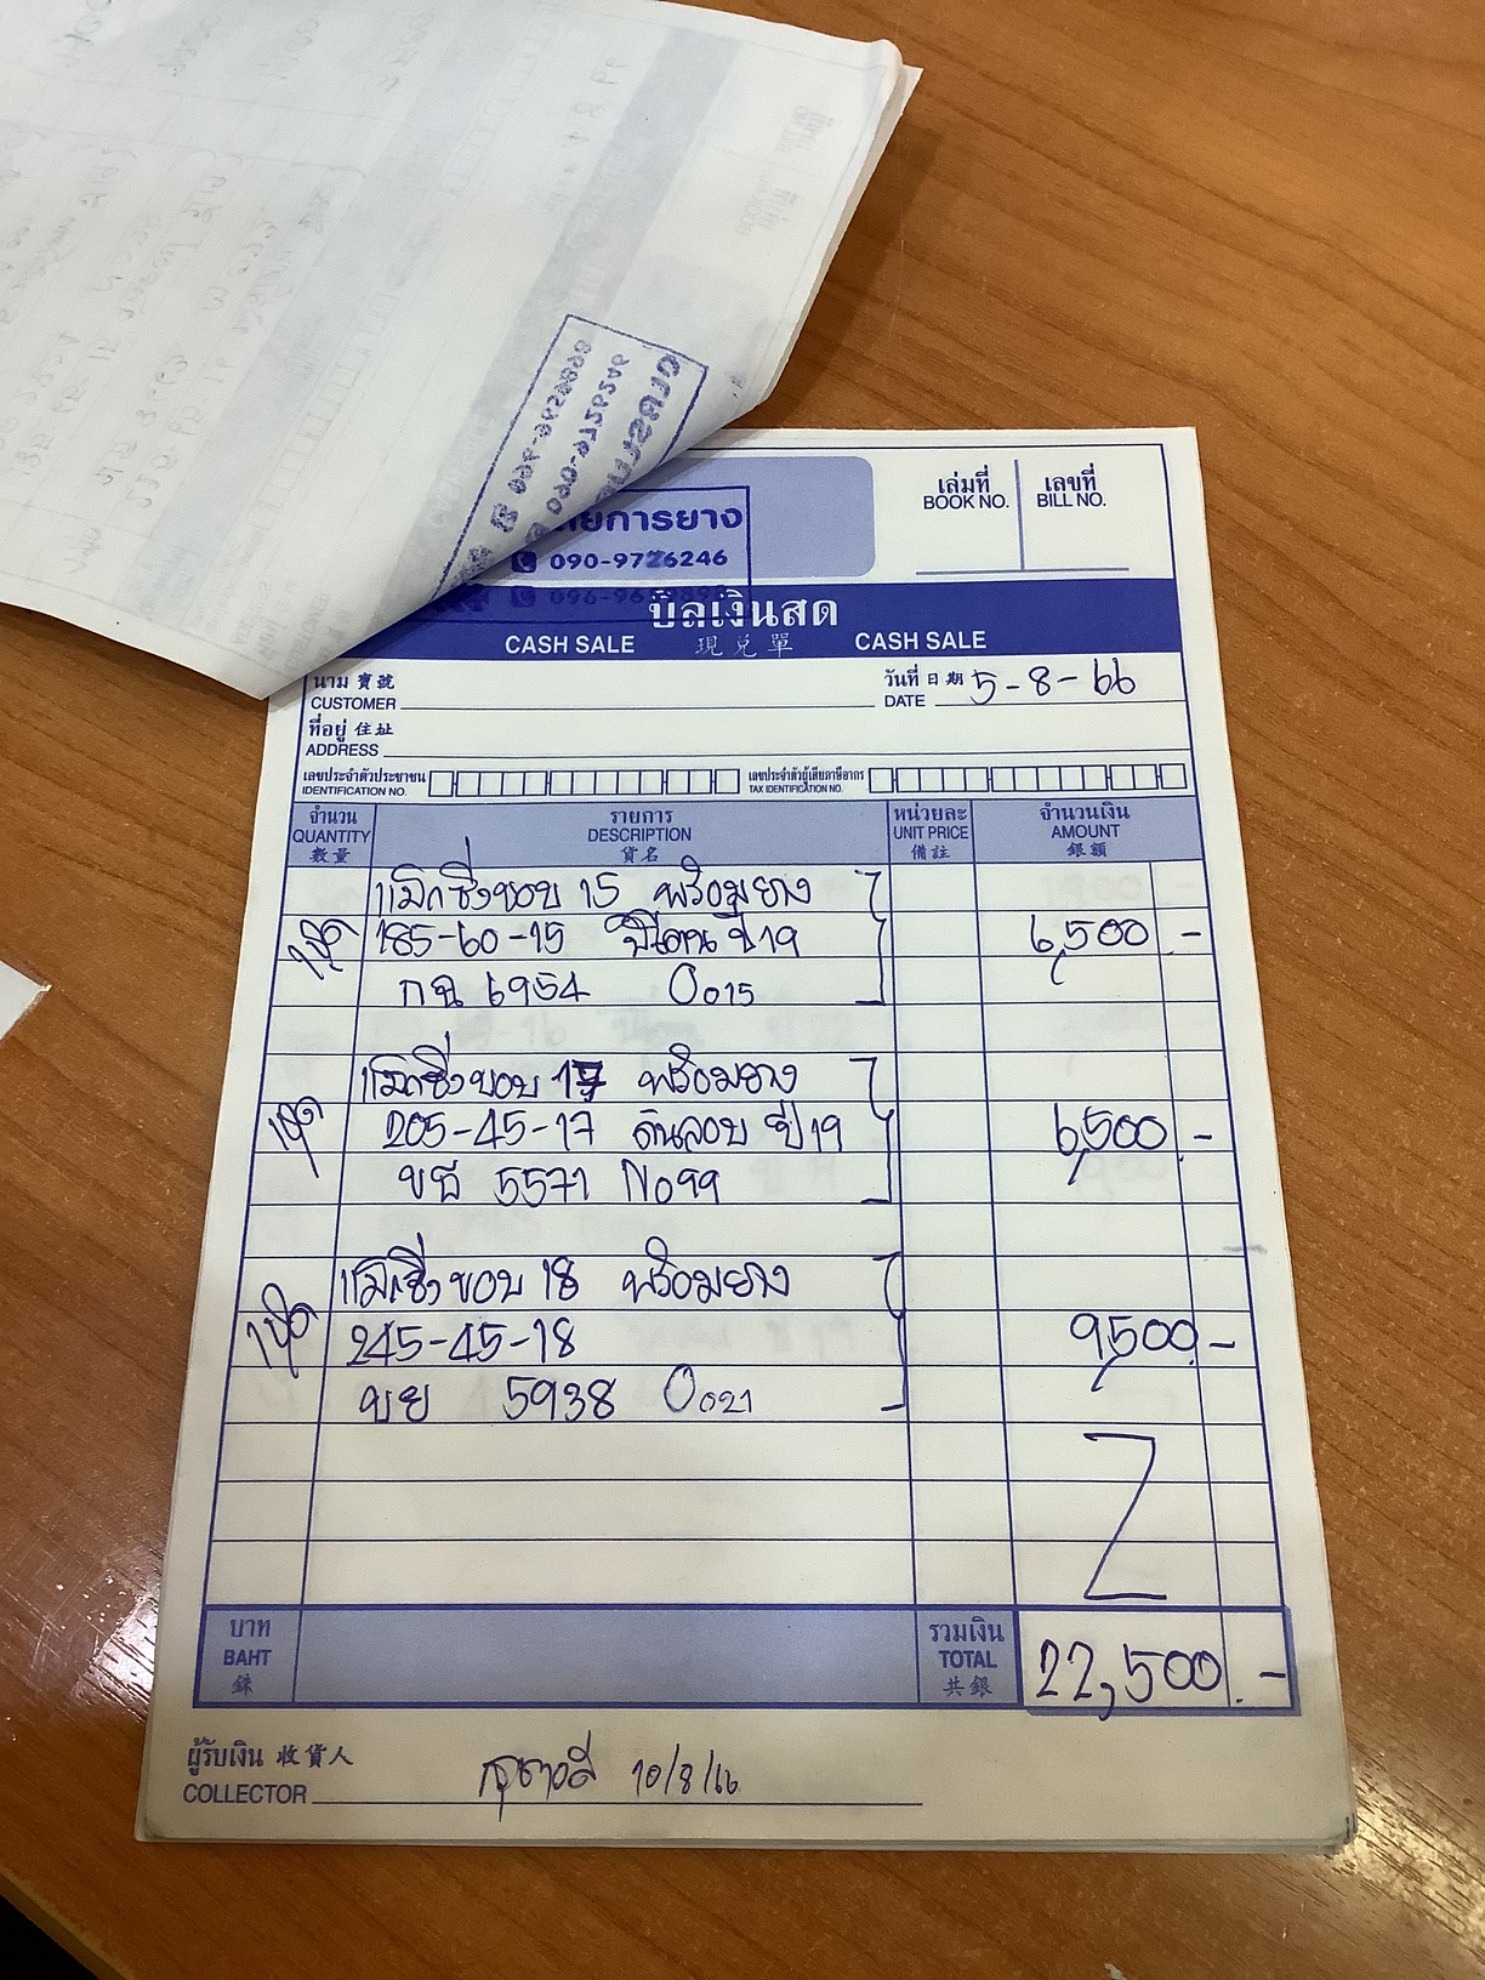 ยการยาง
090-9726246
เล่มที่ เลขที่
BOOK NO. BILL NO.
บิลเงินสด
CASH SALE 現兌單 CASH SALE
นาม 寶號
CUSTOMER
วันที่ 日期 5-8-66
DATE
ที่อยู่ 住址
ADDRESS
เลขประจำตัวประชาชน
IDENTIFICATION NO.
เลขประจำตัวผู้เสียภาษีอากร
TAX IDENTIFICATION NO.
จำนวน รายการ หน่วยละ จำนวนเงิน
QUANTITY DESCRIPTION UNIT PRICE AMOUNT
數量 貨名 備註 銀額
แม็กซิ่งขอบ 15 พร้อมยาง
1ชุด 185-60-15 ปี 19 6,500.-
กฉ 6954 O015
แม็กซิ่งขอบ 17 พร้อมยาง
1ชุด 205-45-17 ดันลอบ ปี 19 6,500.-
5571 N099
แม็กซิ่งขอบ 18 พร้อมยาง
1ชุด 245-45-18 9,500.-
ขย 5938 O021
บาท
BAHT
銖
รวมเงิน
TOTAL
共銀
22,500.-
ผู้รับเงิน 收貨人
COLLECTOR
10/8/66